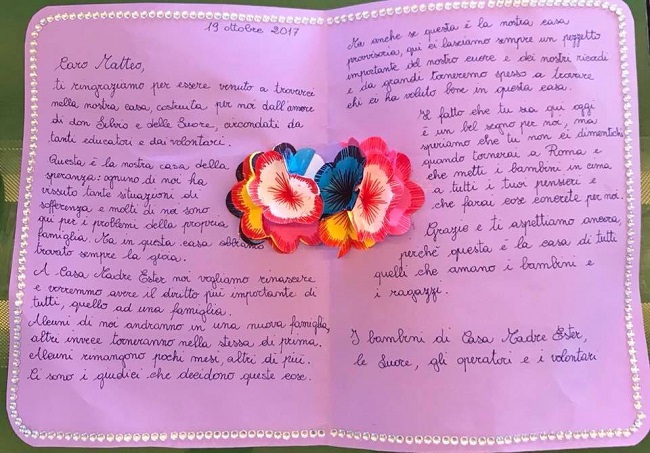 19 ottobre 2017
Caro Matteo,
ti ringraziamo per essere venuto a trovarci
nella nostra casa, costruita per noi dall'amore
di don Silvio e delle Suore, circondati da
tanti educatori e dai volontari.
Questa è la nostra casa della
speranza: ognuno di noi ha
vissuto tante situazioni di
sofferenza e molti di noi sono
qui per i problemi della propria
famiglia. Ma in questa casa abbiamo
trovato sempre la gioia.
A Casa Madre Ester noi vogliamo rinascere
e vorremmo avere il diritto più importante di
tutti, quello ad una famiglia.
Alcuni di noi andranno in una nuova famiglia,
altri invece torneranno nella stessa di prima.
Alcuni rimangono pochi mesi, altri di più.
Ci sono i giudici che decidono queste cose.
Ma anche se questa è la nostra casa
provvisoria, qui ci lasciamo sempre un pezzetto
importante del nostro cuore e dei nostri ricordi
e da grandi torneremo spesso a trovare
chi ci ha voluto bene in questa casa.
Il fatto che tu sia qui oggi
è un bel segno per noi, ma
speriamo che tu non ci dimentichi
quando tornerai a Roma e
che metti i bambini in cima
a tutti i tuoi pensieri e
che farai cose concrete per noi.
Grazie e ti aspettiamo ancora,
perché questa è la casa di tutti
quelli che amano i bambini e
i ragazzi.
I bambini di Casa Madre Ester,
le Suore, gli operatori e i volontari